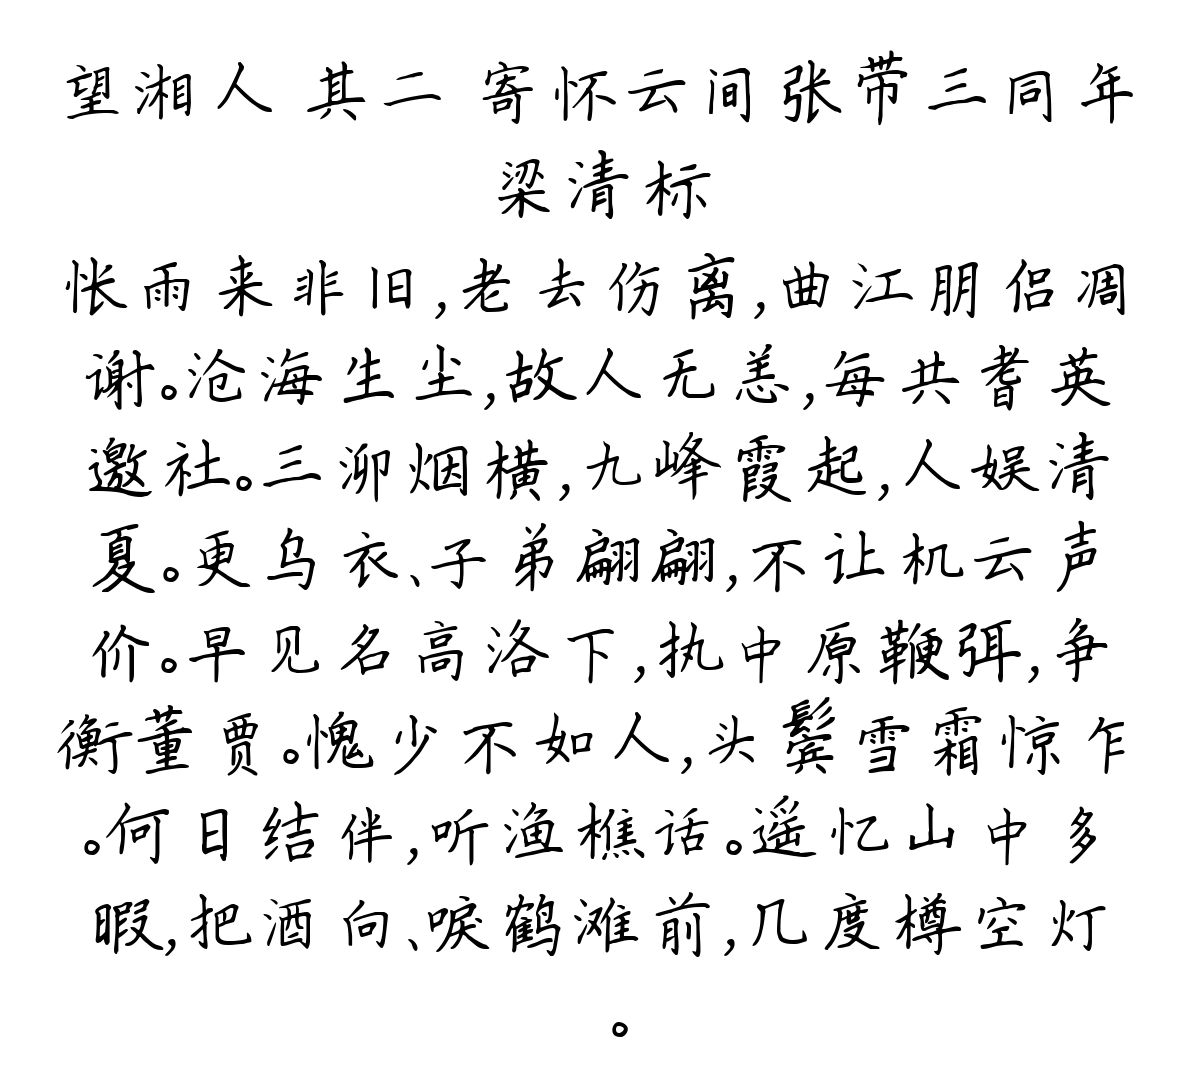 望湘人 其二 寄怀云间张带三同年
梁清标
怅雨来非旧,老去伤离,曲江朋侣凋
谢。沧海生尘,故人无恙,每共耆英
邀社。三泖烟横,九峰霞起,人娱清
夏。更乌衣、子弟翩翩,不让机云声
价。早见名高洛下,执中原鞭弭,争
衡董贾。愧少不如人,头鬓雪霜惊乍
。何日结伴,听渔樵话。遥忆山中多
暇,把酒向、唳鹤滩前,几度樽空灯
。